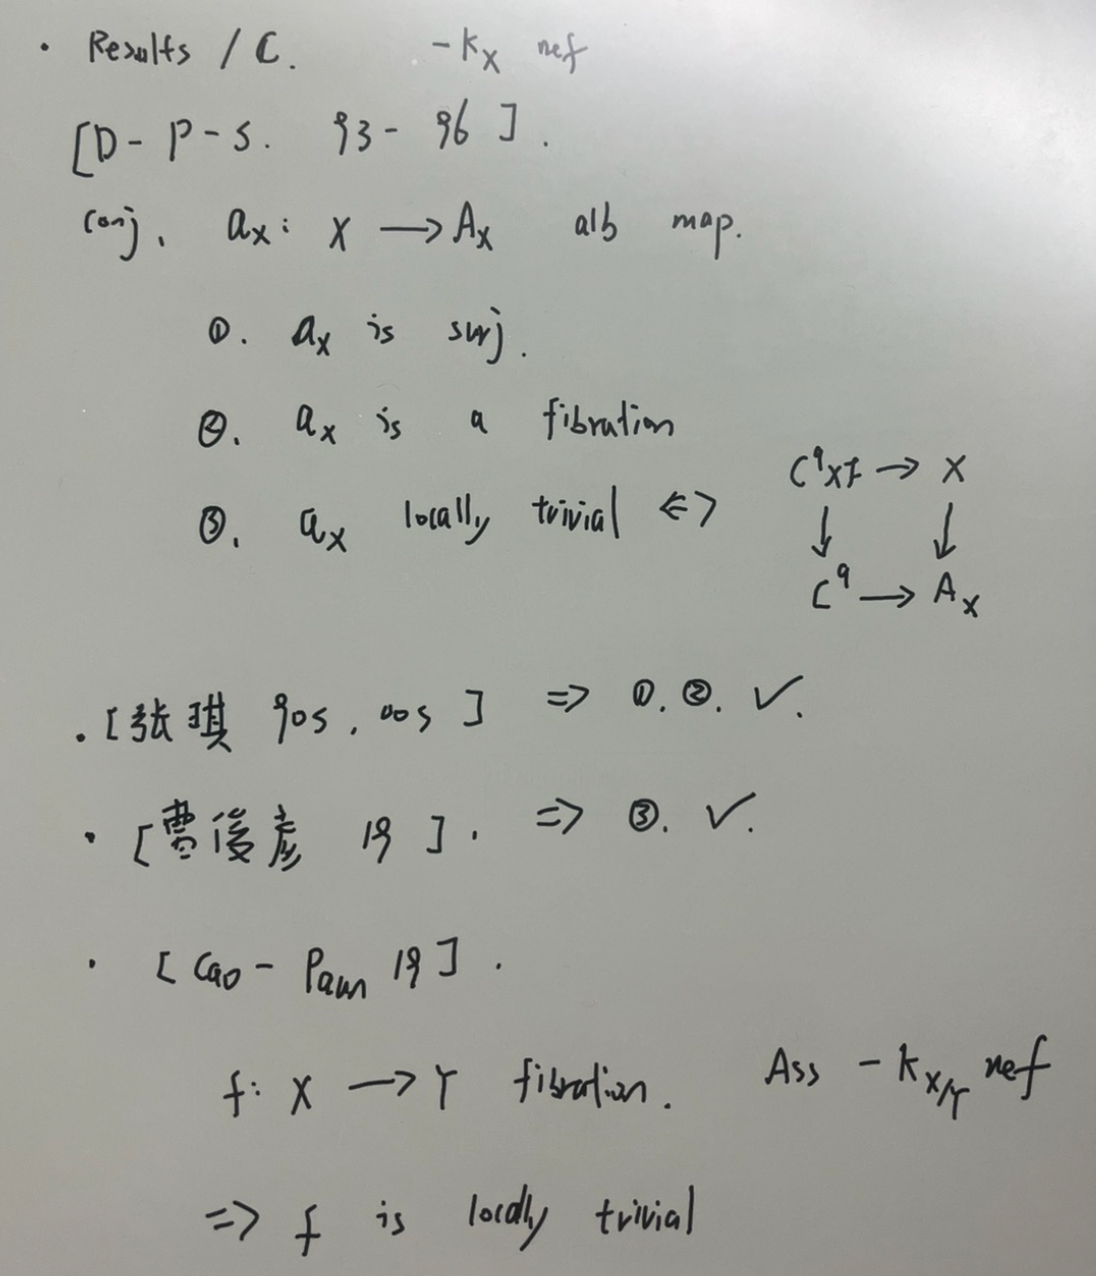 · Results / C. -K_X nef
[D-P-S. 93-96].
Conj. a_X: X → A_X alb map.
①. a_X is surj.
②. a_X is a fibration
C^q×F → X
③. a_X locally trivial <=> ↓ ↓
C^q → A_X
· [张琪 90s, 00s] => ①. ②. ✓.
· [曹後彥 19]. => ③. ✓.
· [Cao - Paun 19].
f: X → Y fibration. Ass -K_{X/Y} nef
=> f is locally trivial